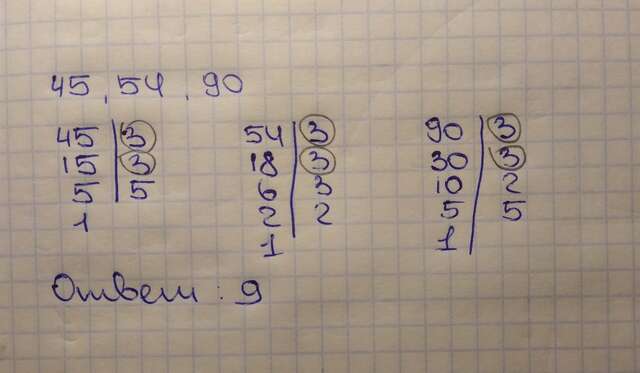 45, 54, 90
45 | 3 54 | 3 90 | 3
15 | 3 18 | 3 30 | 3
5 | 5 6 | 3 10 | 2
1 2 | 2 5 | 5
1 1
Ответ: 9